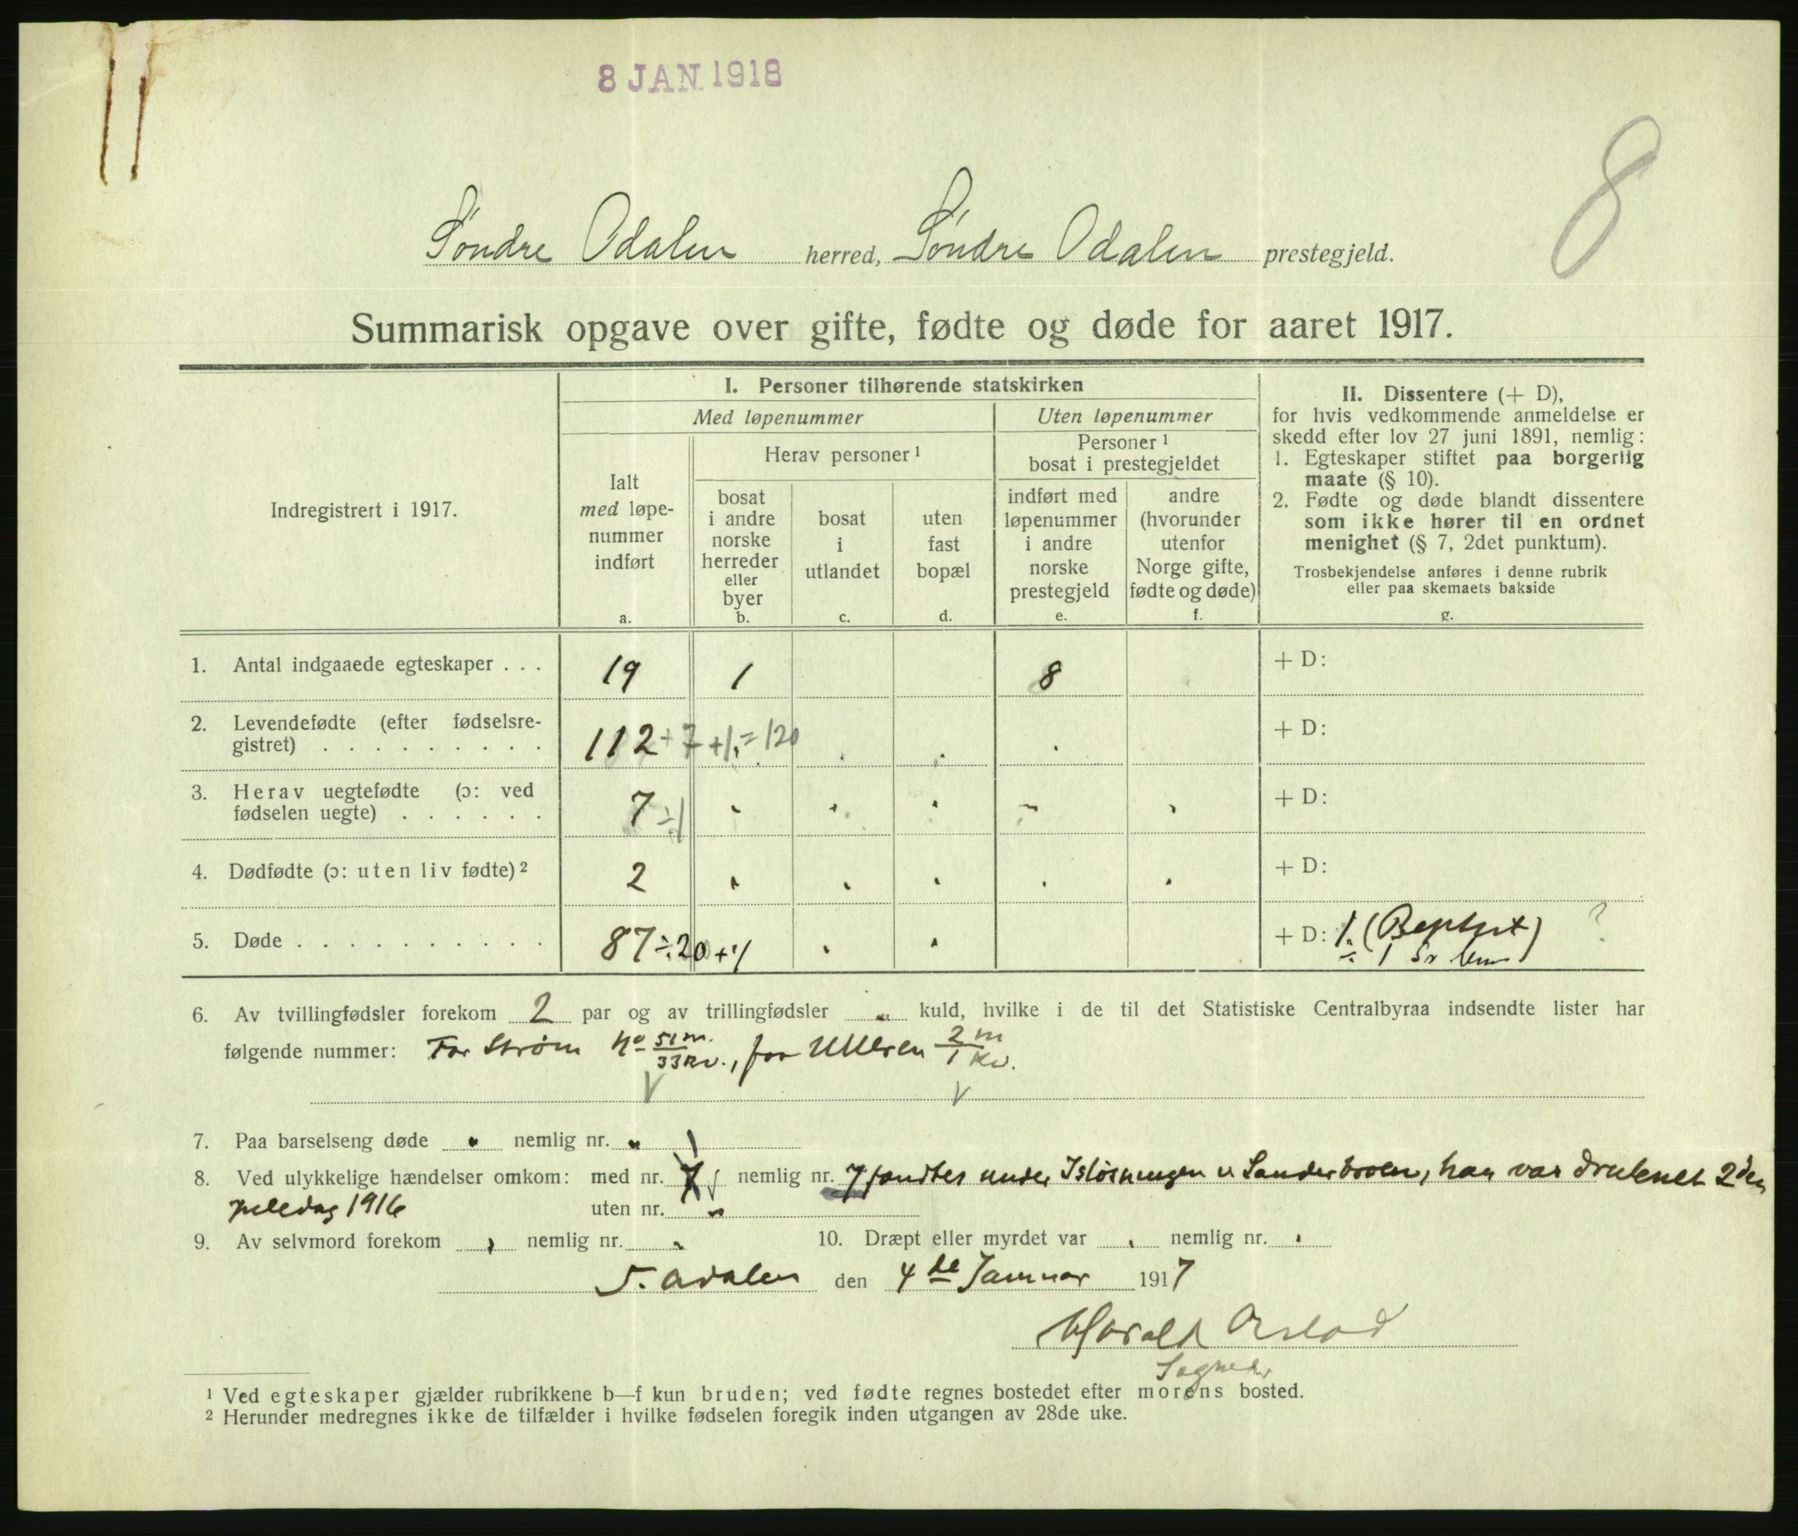 8 JAN. 1918
8
Søndre Odalen herred, Søndre Odalen prestegjeld.
Summarisk opgave over gifte, fødte og døde for aaret 1917.
Indregistrert i 1917.
I. Personer tilhørende statskirken
Med løpenummer
Uten løpenummer
Ialt
med løpe-
nummer
indført
a.
Herav personer ¹
bosat
i andre
norske
herreder
eller
byer
b.
bosat
i
utlandet
c.
uten
fast
bopæl
d.
Personer ¹
bosat i prestegjeldet
indført med
løpenummer
i andre
norske
prestegjeld
e.
andre
(hvorunder
utenfor
Norge gifte,
fødte og døde)
f.
II. Dissentere (+ D),
for hvis vedkommende anmeldelse er
skedd efter lov 27 juni 1891, nemlig:
1. Egteskaper stiftet paa borgerlig
maate (§ 10).
2. Fødte og døde blandt dissentere
som ikke hører til en ordnet
menighet (§ 7, 2det punktum).
Trosbekjendelse anføres i denne rubrik
eller paa skemaets bakside
g.
1. Antal indgaaede egteskaper . . . 19 1 8 + D:
2. Levendefødte (efter fødselsre-
gistret) . . . . . . . . . 112 + 7 + 1 = 120 + D:
3. Herav uegtefødte (ɔ: ved
fødselen uegte) . . . . . . 7 ÷ 1 + D:
4. Dødfødte (ɔ: uten liv fødte) ² 2 + D:
5. Døde . . . . . . . . . . 87 ÷ 20 + 1 + D: 1. (Baptist) ?
÷ 1
6. Av tvillingfødsler forekom 2 par og av trillingfødsler " kuld, hvilke i de til det Statistiske Centralbyraa indsendte lister har
følgende nummer: For Strøm No 51 m. / 33 kv., for Ulleren 2 m / 1 kv.
7. Paa barselseng døde " nemlig nr. "
8. Ved ulykkelige hændelser omkom: med nr. 7 nemlig nr. 7 fandtes under Isløsningen v Sanderbroen, han var druknet 2den
juledag 1916 uten nr. "
9. Av selvmord forekom , nemlig nr. " 10. Dræpt eller myrdet var . nemlig nr. .
S. Odalen den 4de Januar 1917
Harald
¹ Ved egteskaper gjælder rubrikkene b—f kun bruden; ved fødte regnes bostedet efter morens bosted.
² Herunder medregnes ikke de tilfælder i hvilke fødselen foregik inden utgangen av 28de uke.